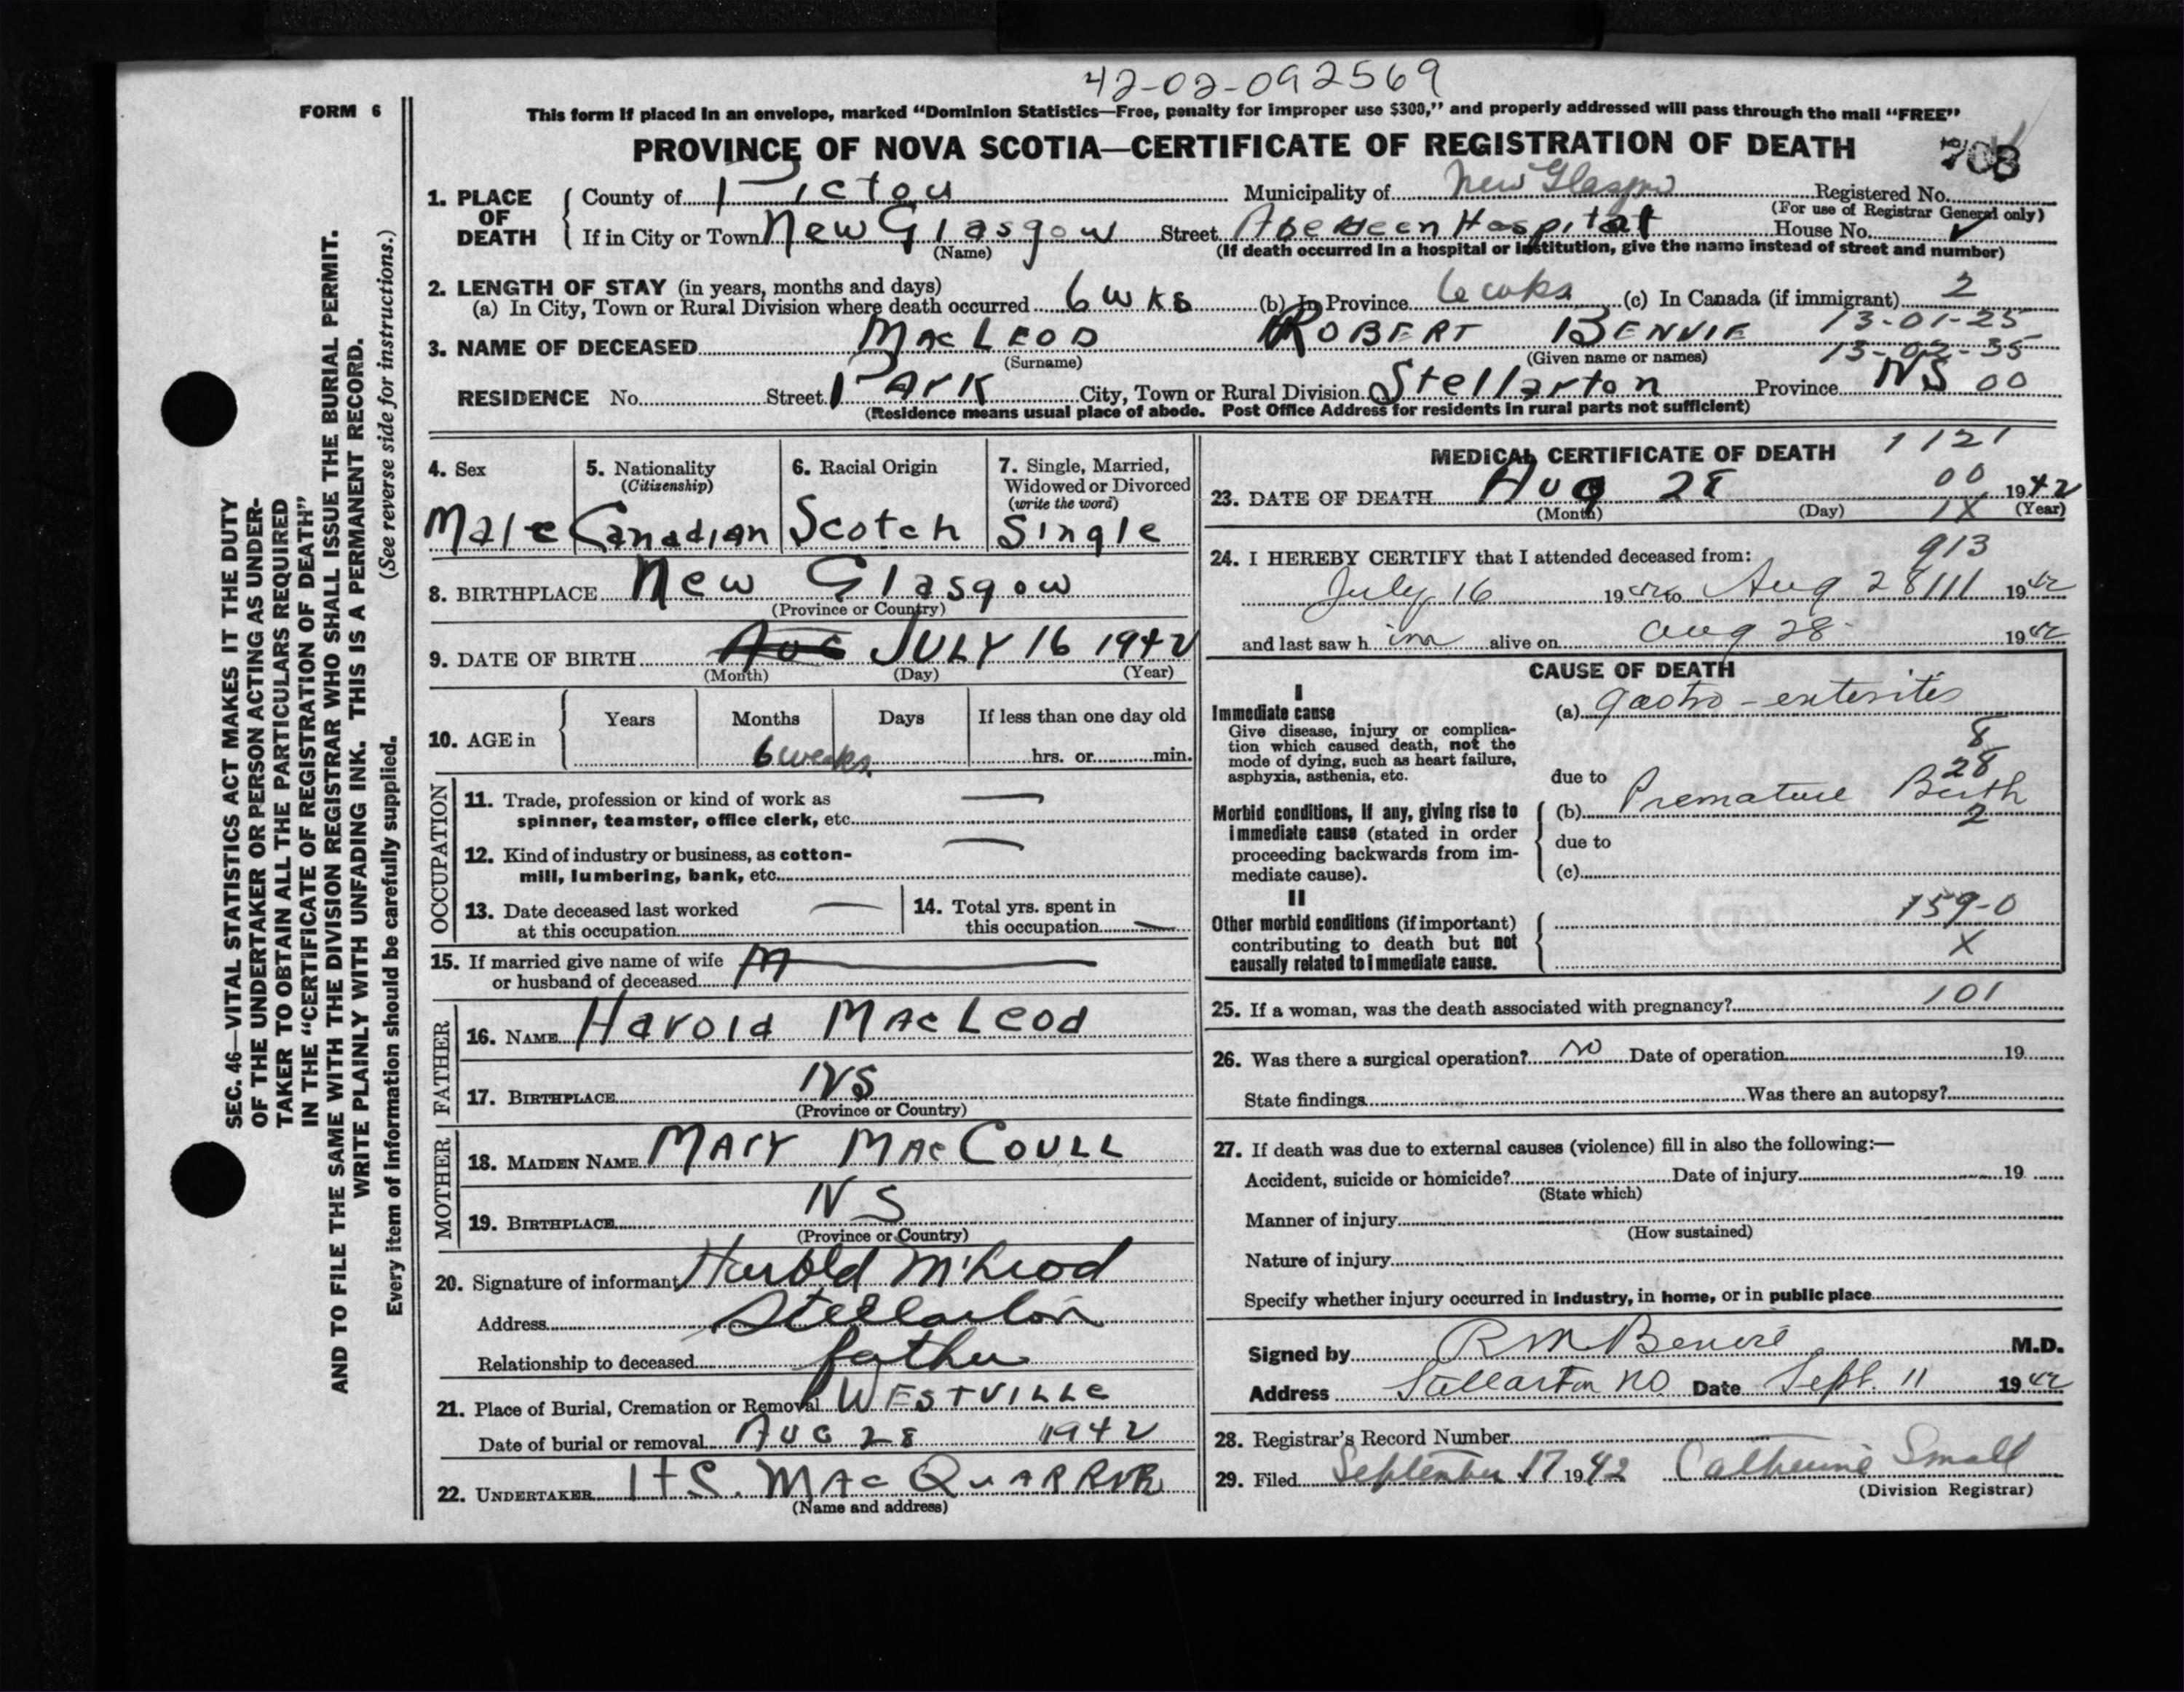 42-02-092569
FORM 6
This form if placed in an envelope, marked “Dominion Statistics—Free, penalty for improper use $300,” and properly addressed will pass through the mail “FREE”
PROVINCE OF NOVA SCOTIA—CERTIFICATE OF REGISTRATION OF DEATH
1. PLACE OF DEATH County of Pictou Municipality of New Glasgow Registered No.
(For use of Registrar General only)
If in City or Town New Glasgow Street Aberdeen Hospital House No.
(Name) (If death occurred in a hospital or institution, give the name instead of street and number)
2. LENGTH OF STAY (in years, months and days)
(a) In City, Town or Rural Division where death occurred 6 wks (b) In Province 6 wks (c) In Canada (if immigrant) 2
13-01-25
3. NAME OF DECEASED MacLeod Robert Benvie
(Surname) (Given name or names) 13-02-35
RESIDENCE No. Street Park City, Town or Rural Division Stellarton Province NS 00
(Residence means usual place of abode. Post Office Address for residents in rural parts not sufficient)
4. Sex 5. Nationality 6. Racial Origin 7. Single, Married,
(Citizenship) Widowed or Divorced
(write the word)
Male Canadian Scotch Single
8. BIRTHPLACE New Glasgow
(Province or Country)
9. DATE OF BIRTH Aug JULY 16 1942
(Month) (Day) (Year)
10. AGE in Years Months Days If less than one day old
6 weeks hrs. or min.
OCCUPATION
11. Trade, profession or kind of work as
spinner, teamster, office clerk, etc.
12. Kind of industry or business, as cotton-
mill, lumbering, bank, etc.
13. Date deceased last worked
at this occupation
14. Total yrs. spent in
this occupation
15. If married give name of wife
or husband of deceased
FATHER
16. NAME Harold MacLeod
17. BIRTHPLACE NS
(Province or Country)
MOTHER
18. MAIDEN NAME Mary MacCoull
19. BIRTHPLACE NS
(Province or Country)
20. Signature of informant Harold McLeod
Address Stellarton
Relationship to deceased father
21. Place of Burial, Cremation or Removal Westville
Date of burial or removal Aug 28 1942
22. UNDERTAKER H S. MacQuarrie
(Name and address)
MEDICAL CERTIFICATE OF DEATH 1121
00
23. DATE OF DEATH Aug 28 1942
(Month) (Day) 1X (Year)
24. I HEREBY CERTIFY that I attended deceased from: 913
July 16 1942 to Aug 28 111 1942
and last saw h im alive on Aug 28 1942
CAUSE OF DEATH
I
Immediate cause
Give disease, injury or complica-
tion which caused death, not the
mode of dying, such as heart failure,
asphyxia, asthenia, etc.
(a) gastro-enteritis
8
28
due to
Morbid conditions, if any, giving rise to
immediate cause (stated in order
proceeding backwards from im-
mediate cause).
(b) Premature Birth
2
due to
(c)
II
Other morbid conditions (if important)
contributing to death but not
causally related to immediate cause.
159-0
X
25. If a woman, was the death associated with pregnancy? 101
26. Was there a surgical operation? no Date of operation 19
State findings Was there an autopsy?
27. If death was due to external causes (violence) fill in also the following:—
Accident, suicide or homicide? Date of injury 19
(State which)
Manner of injury
(How sustained)
Nature of injury
Specify whether injury occurred in industry, in home, or in public place
Signed by R M Benvie M.D.
Address Stellarton NS Date Sept. 11 1942
28. Registrar's Record Number
29. Filed September 17 1942 Catherine Small
(Division Registrar)
SEC. 46—VITAL STATISTICS ACT MAKES IT THE DUTY
OF THE UNDERTAKER OR PERSON ACTING AS UNDER-
TAKER TO OBTAIN ALL THE PARTICULARS REQUIRED
IN THE “CERTIFICATE OF REGISTRATION OF DEATH”
AND TO FILE THE SAME WITH THE DIVISION REGISTRAR WHO SHALL ISSUE THE BURIAL PERMIT.
WRITE PLAINLY WITH UNFADING INK. THIS IS A PERMANENT RECORD.
Every item of information should be carefully supplied. (See reverse side for instructions.)